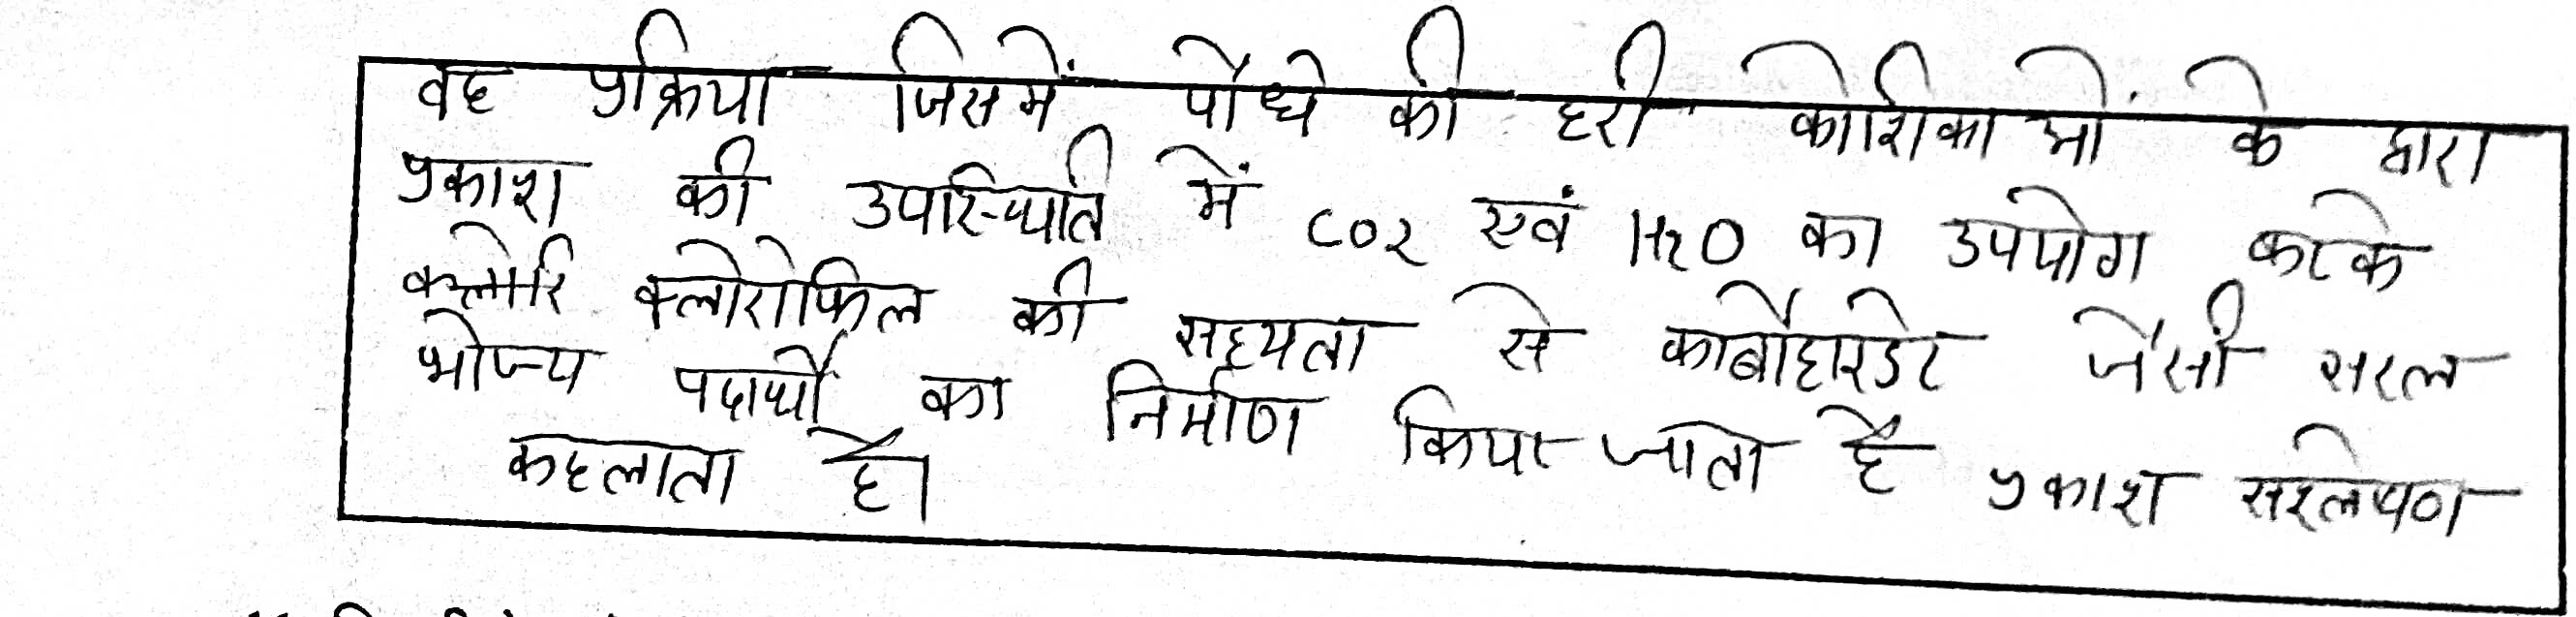 वह प्रक्रिया जिसमें पौधे की हरी कोशिकाओं के द्वारा
प्रकाश की उपस्थिति में CO2 एवं H2O का उपयोग करके
क्लोरोफिल की सहयता से कार्बोहाइडेट जैसी सरल
भोज्य पदार्थों का निर्माण किया जाता है प्रकाश सश्लेषण
कहलाता है।